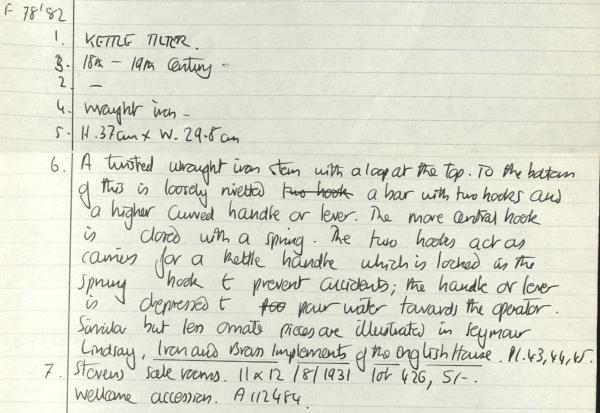 F 78'82
1. KETTLE TILTER.
3. 18th – 19th Century –
2. –
4. wrought iron –
5. H. 37cm x W. 29.8cm
6. A twisted wrought iron stem with a loop at the top. To the bottom
of this is loosely rivetted two hook a bar with two hooks and
a higher curved handle or lever. The more central hook
is closed with a spring. The two hooks act as
carriers for a kettle handle which is locked in the
sprung hook to prevent accidents; the handle or lever
is depressed to pour water towards the operator.
Similar but less ornate pieces are illustrated in Seymour
Lindsay, Iron and Brass Implements of the English House. Pl. 43, 44, 45.
7. Stevens sale rooms. 11 & 12 /8/1931 lot 426, 5/-.
Wellcome accession. A112484.